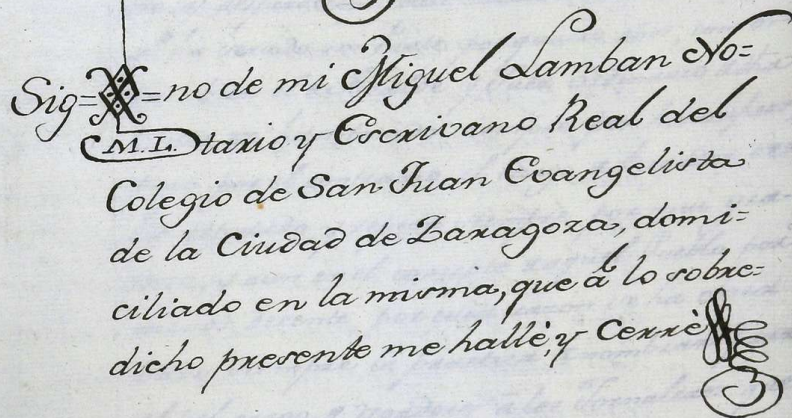 Sig= =no de mi Miguel Lamban No=
M. L. tario y Escrivano Real del
Colegio de San Juan Evangelista
de la Ciudad de Zaragoza, domi=
ciliado en la misma, que â lo sobre=
dicho presente me hallè, y Cerrè